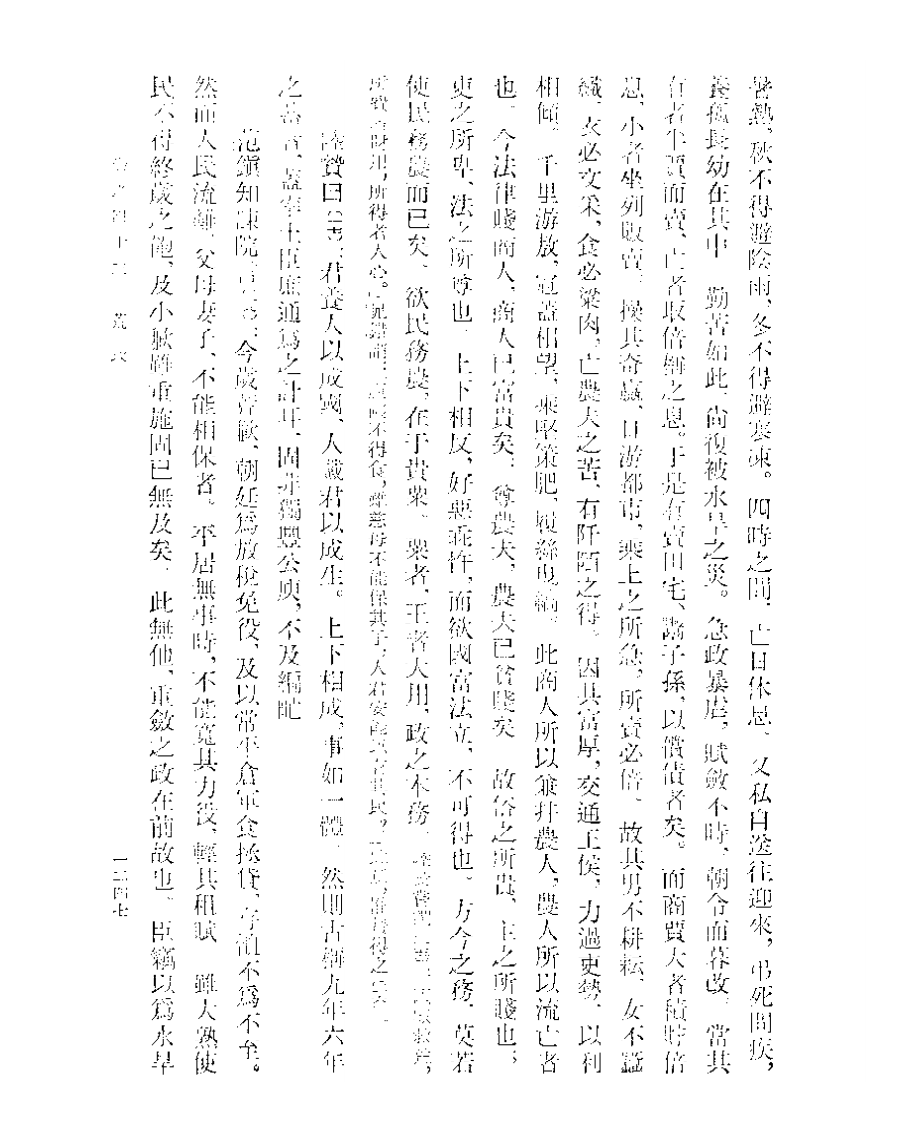 暑熱，秋不得避陰雨，冬不得避寒凍。四時之間，亡日休息。又私自送往迎來，弔死問疾，
養孤長幼在其中。勤苦如此，尚復被水旱之災。急政暴虐，賦斂不時，朝令而暮改。當其
有者半賈而賣，亡者取倍稱之息。于是有賣田宅、鬻子孫，以償債者矣。而商賈大者積貯倍
息，小者坐列販賣，操其奇贏，日游都市，乘上之所急，所賣必倍。故其男不耕耘，女不蠶
織，衣必文采，食必粱肉，亡農夫之苦，有阡陌之得。因其富厚，交通王侯，力過吏勢，以利
相傾。千里游敖，冠蓋相望，乘堅策肥，履絲曳縞。此商人所以兼并農人，農人所以流亡者
也。今法律賤商人，商人已富貴矣；尊農夫，農夫已貧賤矣。故俗之所貴，主之所賤也；
吏之所卑，法之所尊也。上下相反，好惡乖忤，而欲國富法立，不可得也。方今之務，莫若
使民務農而已矣。欲民務農，在于貴粟。粟者，王者大用，政之本務。
所費者財用，所得者人心。不得食，雖慈母不能保其子，人君安能
陸贄曰：君養人以成國，人戴君以成生。上下相成，事如一體。然則古稱九年六年
之蓄者，蓋率土臣庶通爲之計耳，固非獨豐公庾，不及編甿。
范鎮知諫院，今歲荒歉，朝廷爲放稅免役，及以常平倉軍食拯貸，存恤不爲不至。
然而人民流離，父母妻子，不能相保者。平居無事時，不能寬其力役，輕其租賦。雖大熟使
民不得終歲之飽，及小歉雖重施固已無及矣。此無他，重斂之政在前故也。臣竊以爲水旱
卷四十 荒政
一二四七